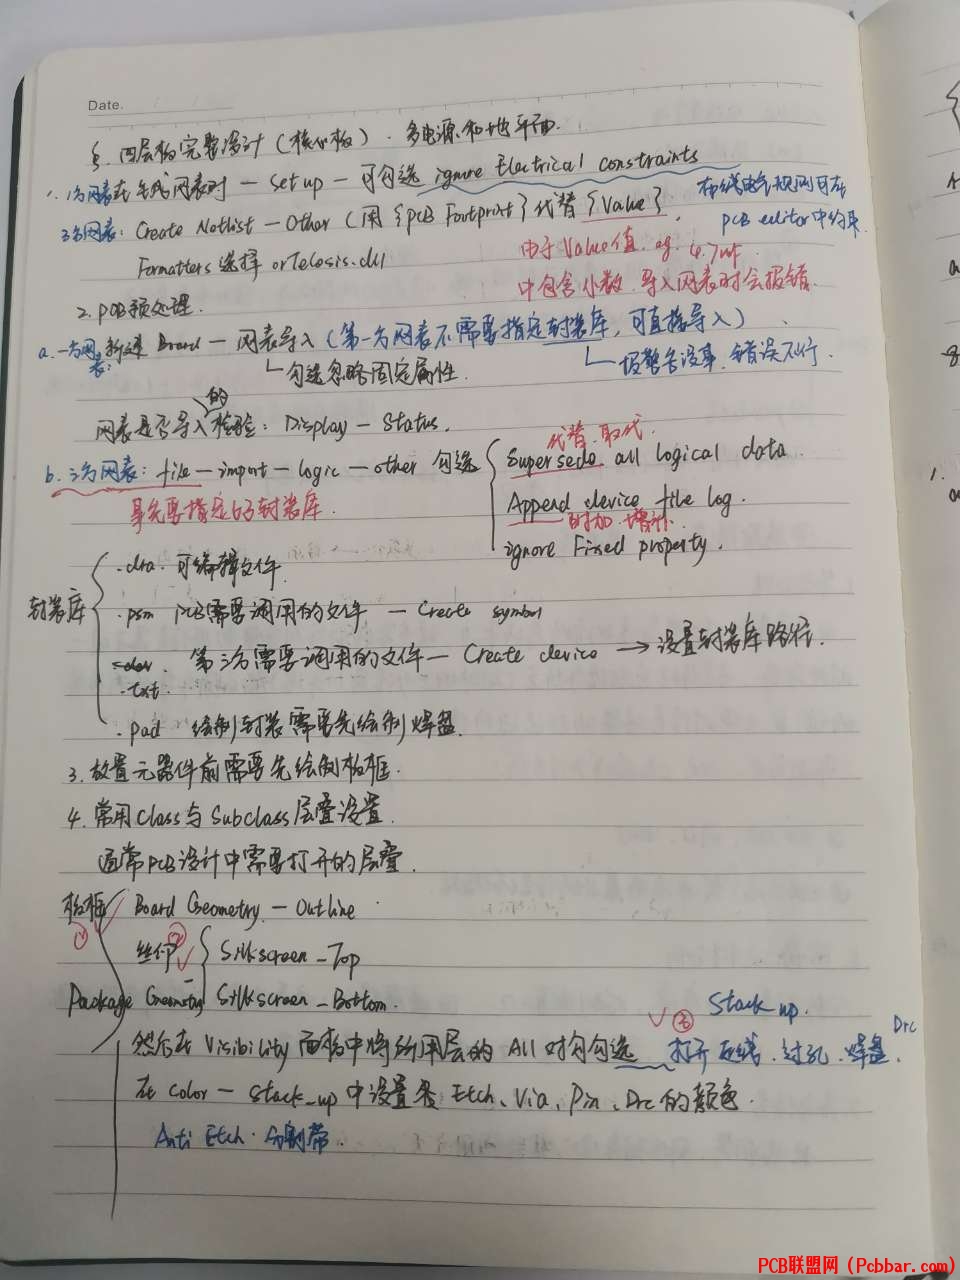 Date.
§. 四层板完整设计（核心板）. 多电源和地平面.
1. 1方网表在生成网表时 — Set up — 可勾选 ignore Electrical constraints
布线电气规则可在
PCB editor中约束
3方网表: Create Netlist — Other (用 {PCB Footprint} 代替 {Value}.
Formatters 选择 orTelesis.dll
由于Value值. eg. 4.7uf
中包含小数, 导入网表时会报错.
2. PCB预处理.
a. 一方网表: 新建 Board — 网表导入 (第一方网表不需要指定封装库, 可直接导入)
勾选忽略固定属性.
报警告没事, 错误不行
网表是否导入的检验: Display — Status.
b. 三方网表: file — import — logic — other 勾选
代替. 取代.
Supersede all logical data.
Append device file log.
附加. 增补.
ignore Fixed property.
事先要指定好封装库.
封装库
.dra. 可编辑文件.
.psm PCB需要调用的文件 — Create symbol
第三方需要调用的文件 — Create device → 设置封装库路径.
.txt.
.pad 绘制封装需要先绘制焊盘.
3. 放置元器件前需要先绘制板框.
4. 常用Class与Subclass层叠设置.
通常PCB设计中需要打开的层叠.
板框 ① Board Geometry — Outline
丝印 ②
Package Geometry
Silkscreen_Top
Silkscreen_Bottom.
③ Stack up.
然后在 Visibility 面板中将所用层的 All 对勾勾选 打开 走线. 过孔. 焊盘. Drc
在 color — Stack_up 中设置各 Etch、Via、Pin、Drc 的颜色.
Anti Etch. 分割带.
PCB联盟网（Pcbbar.com）